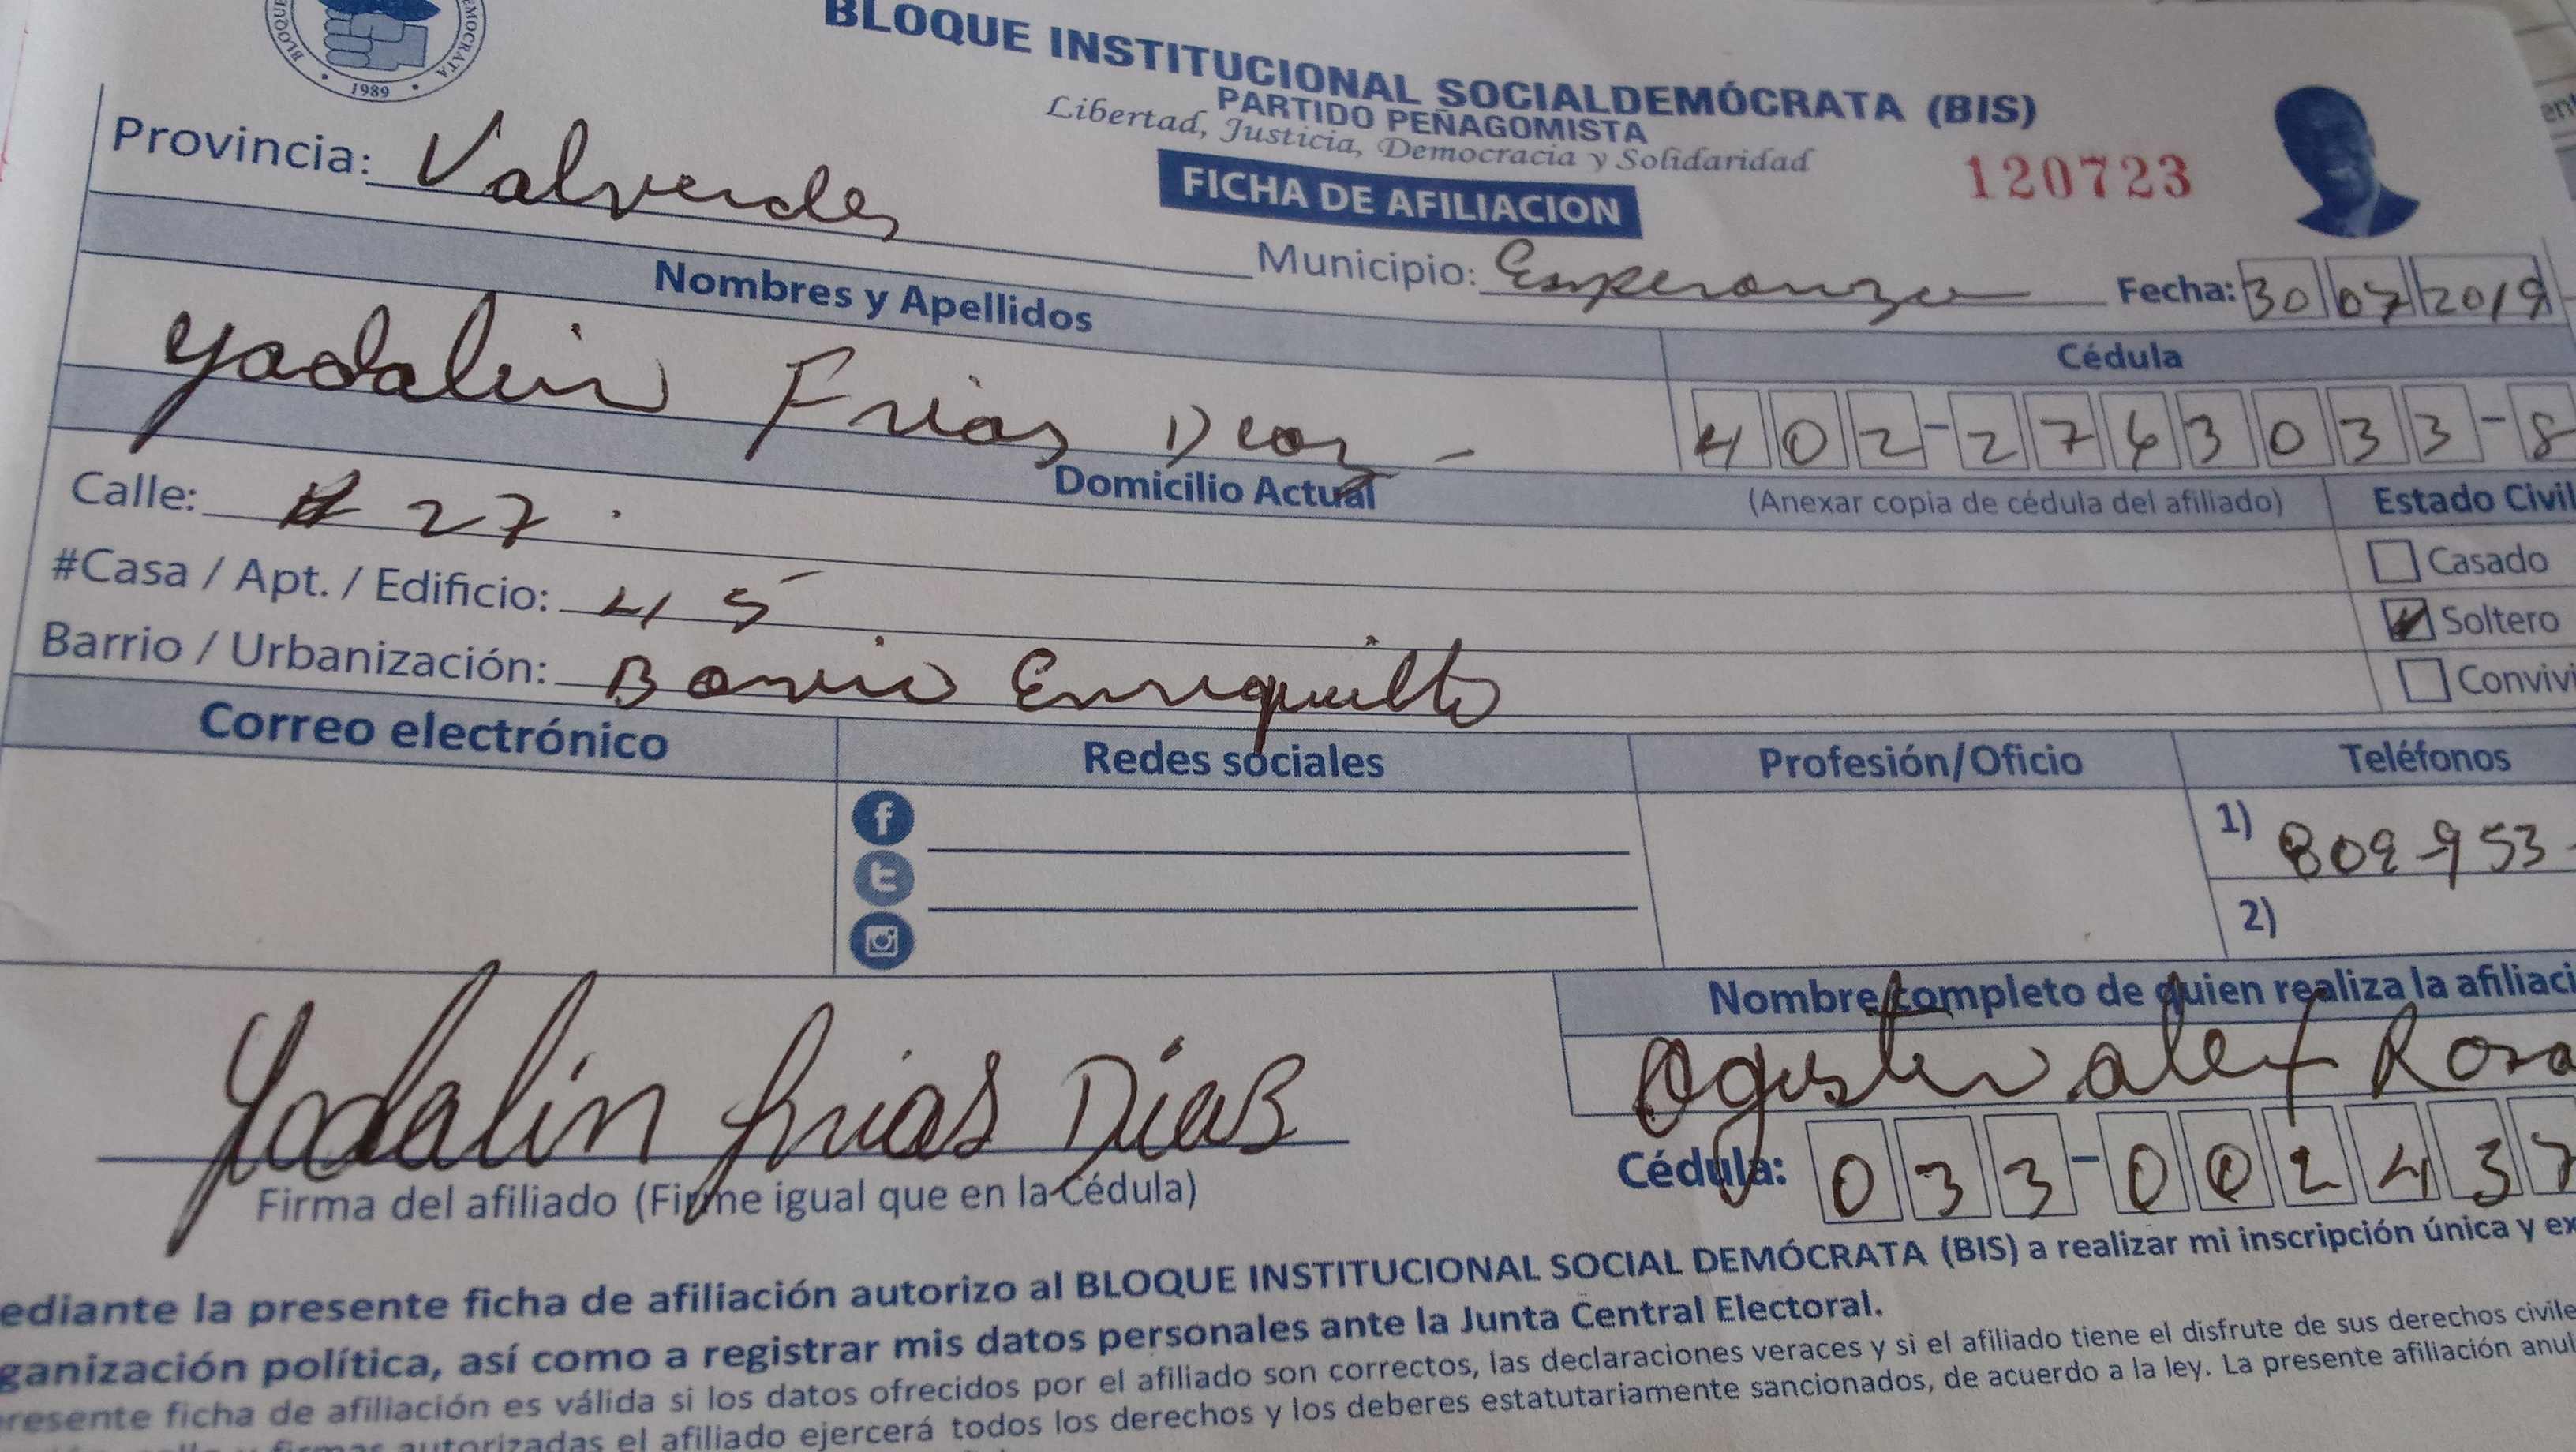 BLOQUE DEMOCRATA
1989
BLOQUE INSTITUCIONAL SOCIALDEMÓCRATA (BIS)
PARTIDO PEÑAGOMISTA
Libertad, Justicia, Democracia y Solidaridad
FICHA DE AFILIACION
120723
Provincia: Valverde,
Municipio: Esperanza Fecha: 30 07 2019
Nombres y Apellidos
Cédula
Yadalin Frias Diaz -
402-2763033-8
Domicilio Actual
(Anexar copia de cédula del afiliado)
Estado Civil
Calle: # 27.
Casado
#Casa / Apt. / Edificio: 45
Soltero
Barrio / Urbanización: Barrio Enriquillo
Convivi
Correo electrónico
Redes sociales
Profesión/Oficio
Teléfonos
1) 809-953-
2)
Nombre completo de quien realiza la afiliaci
Ogustin alex Rosa
Yodalin frias Diaz
Firma del afiliado (Firme igual que en la Cédula)
Cédula: 033-002437
ediante la presente ficha de afiliación autorizo al BLOQUE INSTITUCIONAL SOCIAL DEMÓCRATA (BIS) a realizar mi inscripción única y ex
ganización política, así como a registrar mis datos personales ante la Junta Central Electoral.
resente ficha de afiliación es válida si los datos ofrecidos por el afiliado son correctos, las declaraciones veraces y si el afiliado tiene el disfrute de sus derechos civile
firmas autorizadas el afiliado ejercerá todos los derechos y los deberes estatutariamente sancionados, de acuerdo a la ley. La presente afiliación anul